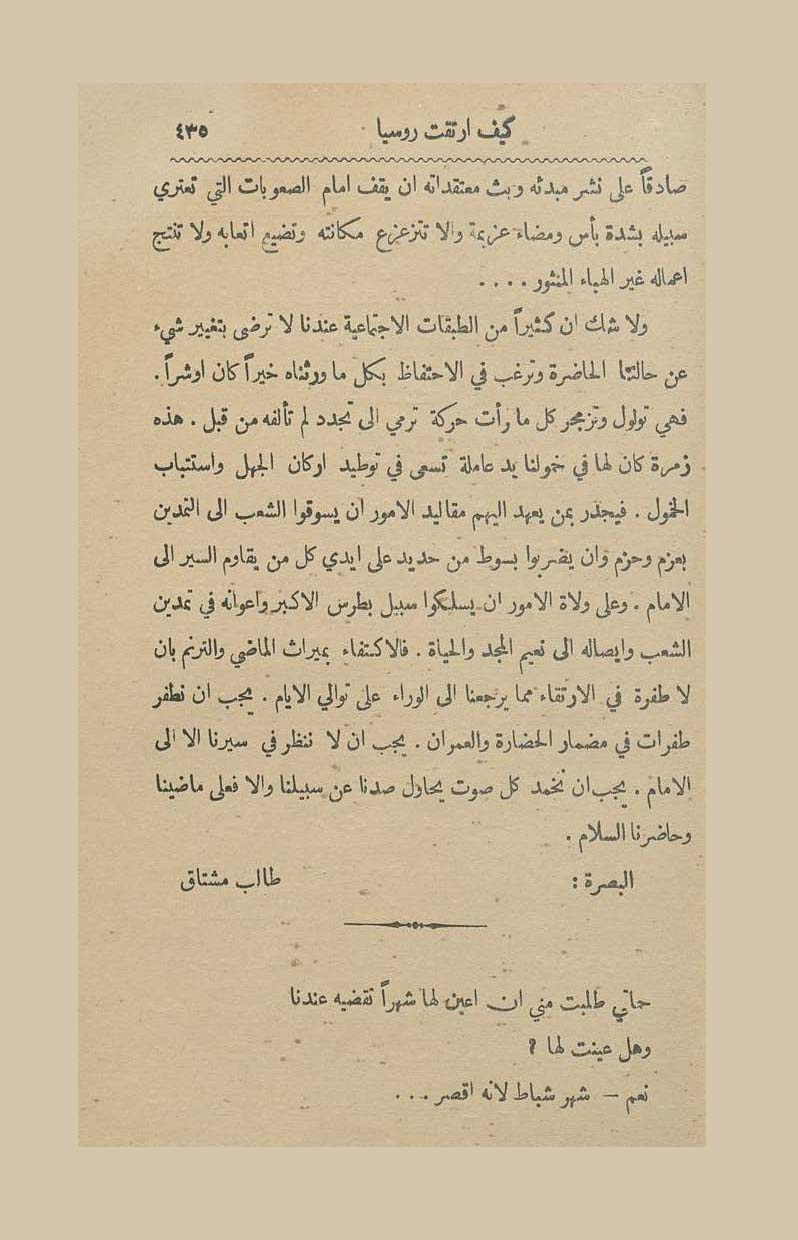 كيف ارتقت روسيا ٤٣٥
صادقاً على نشر مبدئه وبث معتقداته ان يقف امام الصعوبات التي تعتري
سبيله بشدة بأس ومضاء عزيمة والا تتزعزع مكانته وتضيع اتعابه ولا تنتج
اعماله غير الهباء المنثور ....
ولا شك ان كثيراً من الطبقات الاجتماعية عندنا لا ترضى بتغيير شيء
عن حالتنا الحاضرة وترغب في الاحتفاظ بكل ما ورثناه خيراً كان اوشراً .
فهي تولول وتزمجر كل ما رأت حركة ترمي الى تجدد لم تألفه من قبل . هذه
زمرة كان لها في خمولنا يد عاملة تسعى في توطيد اركان الجهل واستتباب
الخمول . فيجدر بمن يعهد اليهم مقاليد الامور ان يسوقوا الشعب الى التمدين
بعزم وحزم وان يضربوا بسوط من حديد على ايدي كل من يقاوم السير الى
الامام . وعلى ولاة الامور ان يسلكوا سبيل بطرس الاكبر واعوانه في تمدين
الشعب وايصاله الى نعيم المجد والحياة . فالاكتفاء بميراث الماضي والترنم بان
لا طفرة في الارتقاء مما يرجعنا الى الوراء على توالي الايام . يجب ان نطفر
طفرات في مضمار الحضارة والعمران . يجب ان لا ننظر في سيرنا الا الى
الامام . يجب ان نخمد كل صوت يحاول صدنا عن سبيلنا والا فعلى ماضينا
وحاضرنا السلام .
البصرة : طالب مشتاق
حماتي طلبت مني ان اعين لها شهراً تقضيه عندنا
وهل عينت لها ؟
نعم — شهر شباط لانه اقصر ...